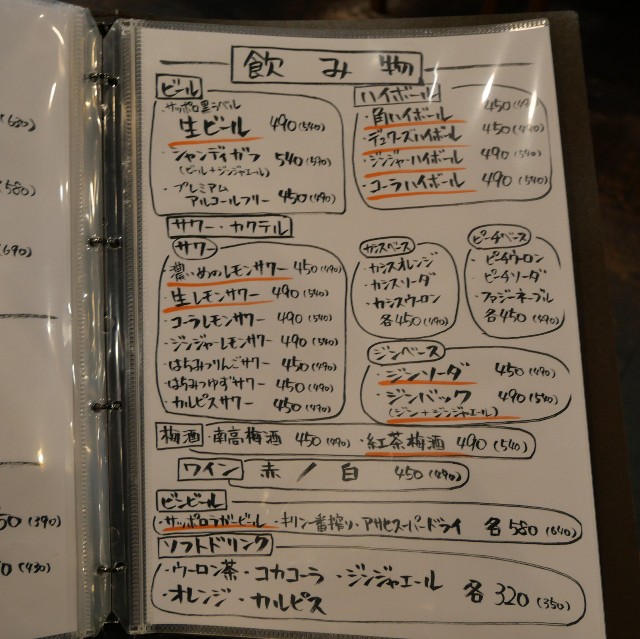 飲み物
ビール
・サッポロ黒ラベル
生ビール 490(540)
・シャンディガフ 540(590)
(ビール+ジンジャエール)
・プレミアム
アルコールフリー 450(490)
ハイボール
・角ハイボール 450(490)
・デュワーズハイボール 450(490)
・ジンジャーハイボール 490(540)
・コーラハイボール 490(540)
サワー・カクテル
サワー
・濃いめのレモンサワー 450(490)
・生レモンサワー 490(540)
・コーラレモンサワー 490(540)
・ジンジャーレモンサワー 490(540)
・はちみつりんごサワー 450(490)
・はちみつゆずサワー 450(490)
・カルピスサワー 450(490)
カシスベース
・カシスオレンジ
・カシスソーダ
・カシスウーロン
各450(490)
ピーチベース
・ピーチウーロン
・ピーチソーダ
・ファジーネーブル
各450(490)
ジンベース
・ジンソーダ 450(490)
・ジンバック 490(540)
(ジン+ジンジャエール)
梅酒 ・南高梅酒 450(490) ・紅茶梅酒 490(540)
ワイン 赤/白 450(490)
ビンビール
・サッポロラガービール ・キリン一番搾り ・アサヒスーパードライ 各580(640)
ソフトドリンク
・ウーロン茶 ・コカコーラ ・ジンジャエール
・オレンジ ・カルピス 各320(350)
630)
580)
690)
50(390)
0(430)